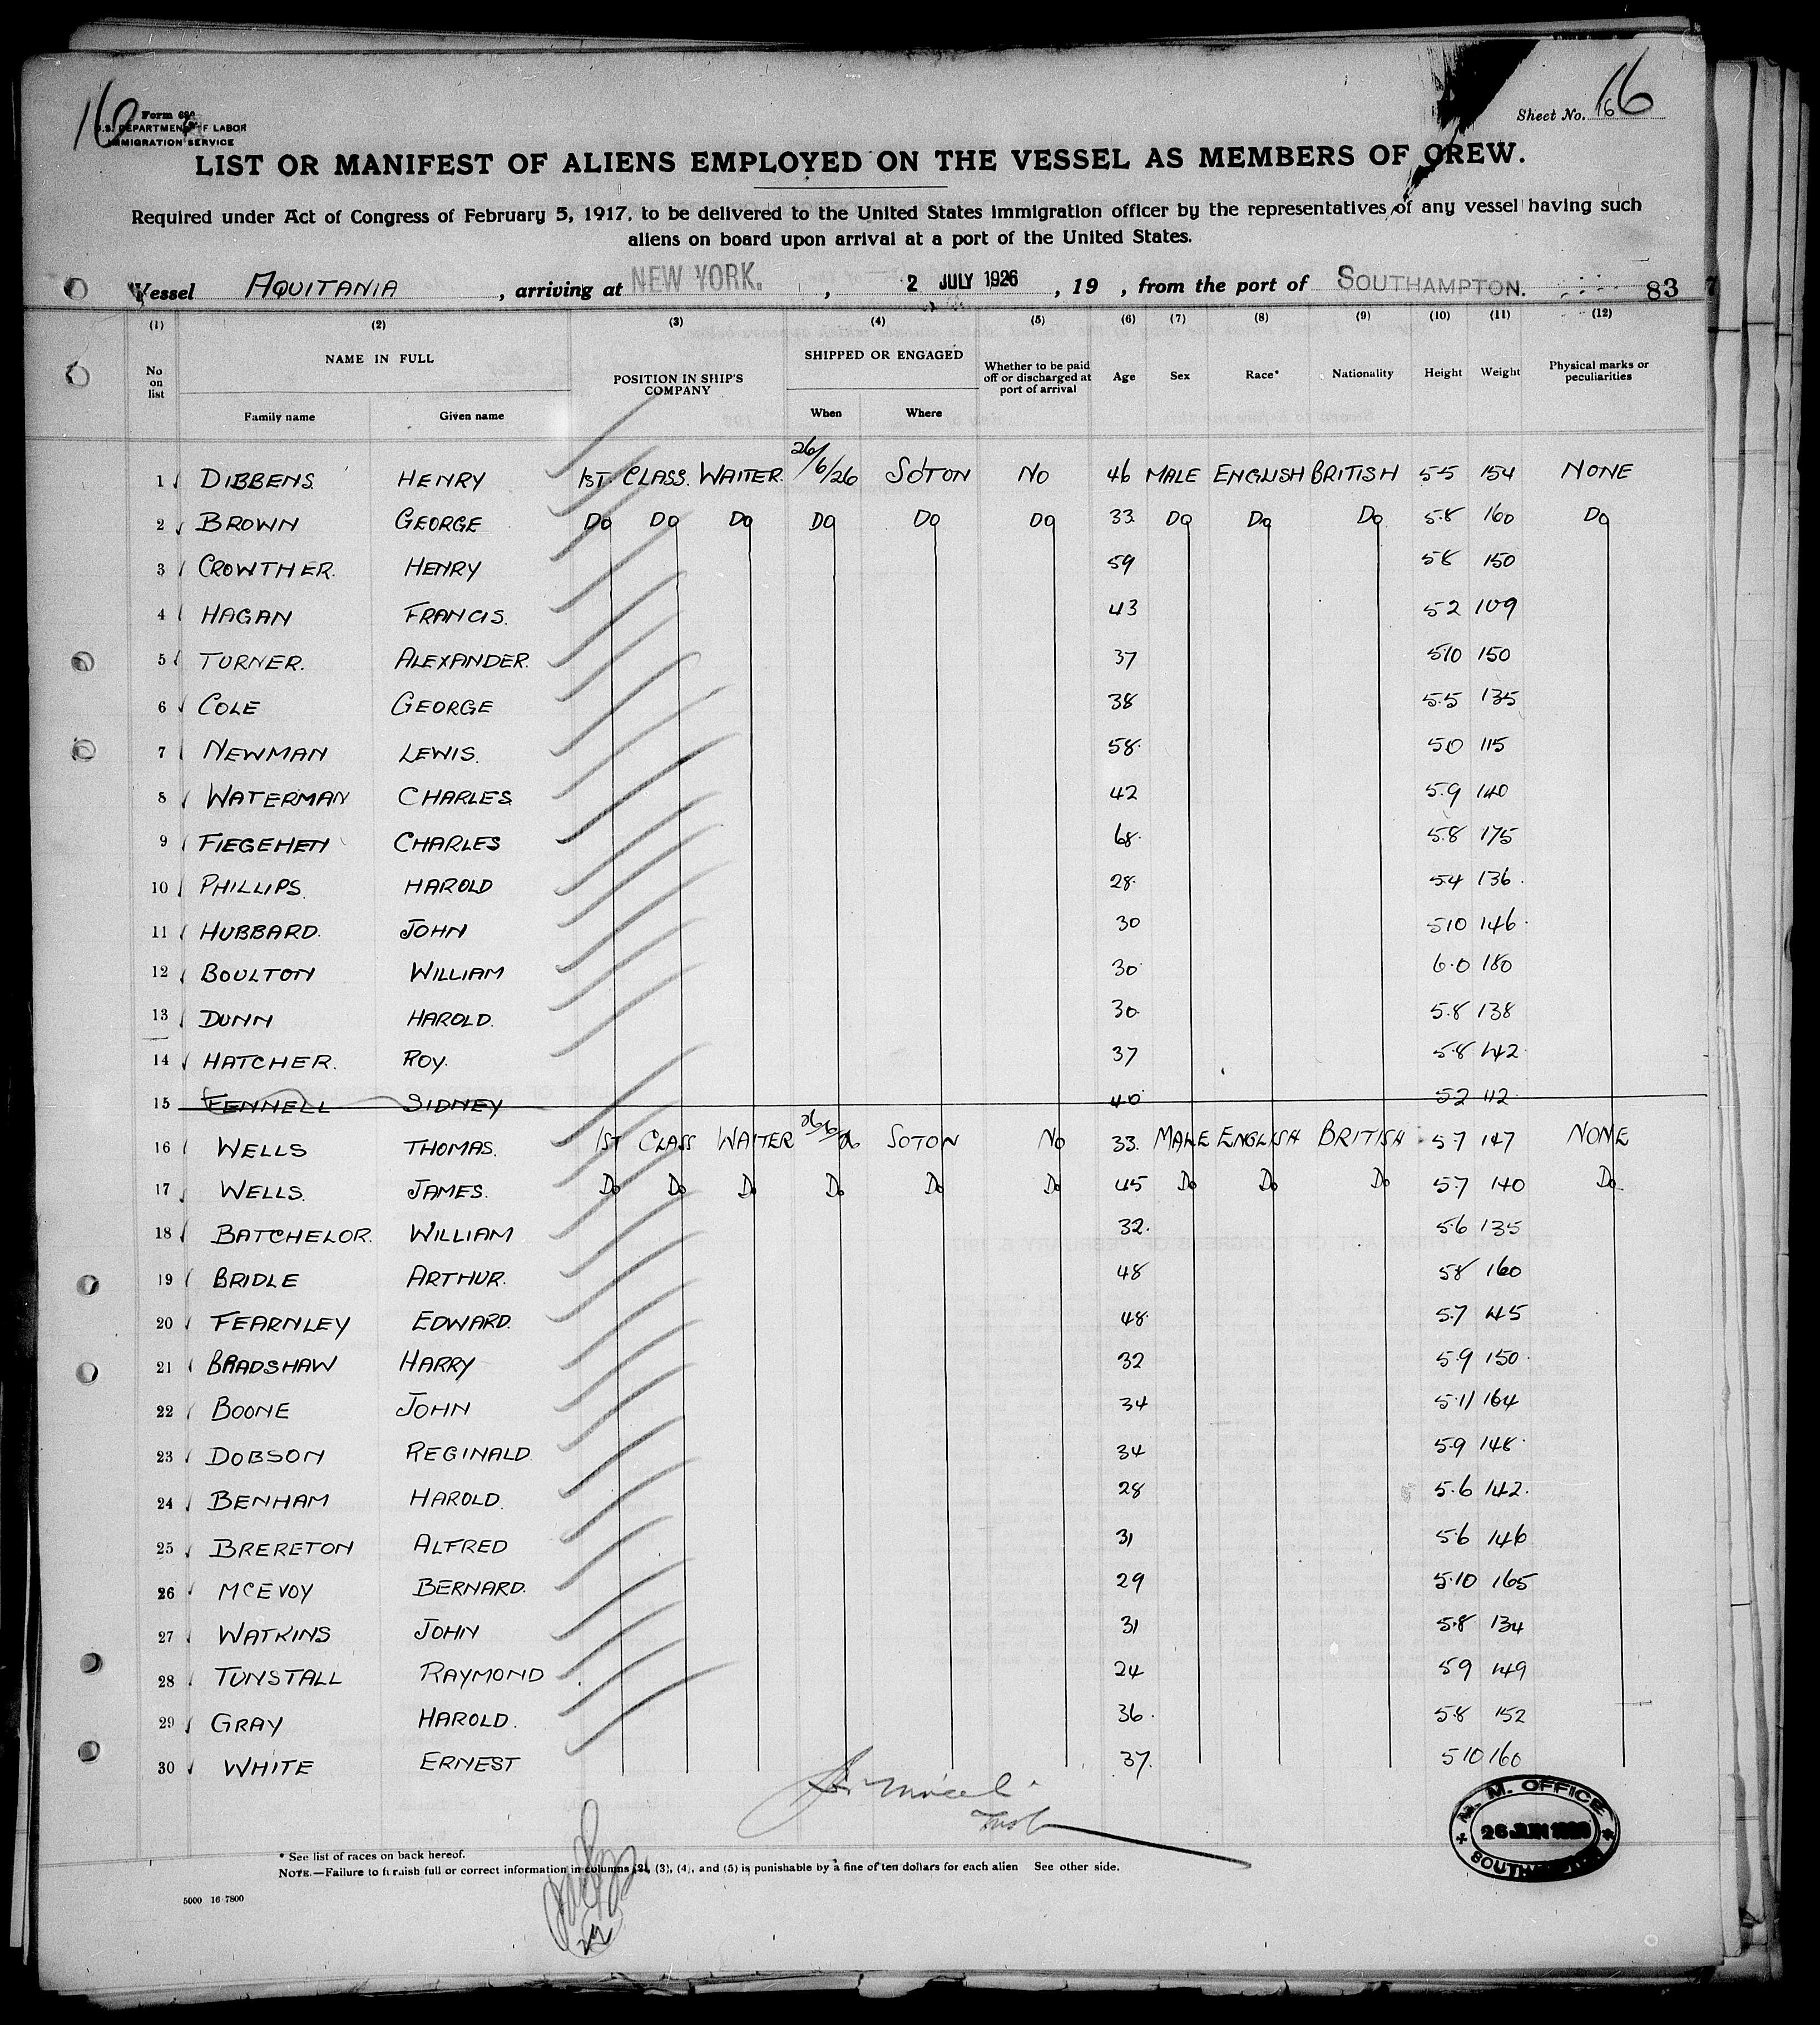 16
Form 680
U.S. DEPARTMENT OF LABOR
IMMIGRATION SERVICE
Sheet No. 16 16
LIST OR MANIFEST OF ALIENS EMPLOYED ON THE VESSEL AS MEMBERS OF CREW.
Required under Act of Congress of February 5, 1917, to be delivered to the United States immigration officer by the representatives of any vessel having such
aliens on board upon arrival at a port of the United States.
Vessel AQUITANIA, arriving at NEW YORK., 2 JULY 1926, 19 , from the port of SOUTHAMPTON. 83 7
(1) (2) (3) (4) (5) (6) (7) (8) (9) (10) (11) (12)
No on list NAME IN FULL Family name Given name POSITION IN SHIP'S COMPANY SHIPPED OR ENGAGED When Where Whether to be paid off or discharged at port of arrival Age Sex Race* Nationality Height Weight Physical marks or peculiarities
1 DIBBENS HENRY 1ST. CLASS. WAITER. 26/6/26 SOTON NO 46 MALE ENGLISH BRITISH 5-5 154 NONE
2 BROWN GEORGE DO DO DO DO DO DO 33 DO DO DO 5.8 160 DO
3 CROWTHER. HENRY 59 58 150
4 HAGAN FRANCIS. 43 52 109
5 TURNER. ALEXANDER. 37 510 150
6 COLE GEORGE 38 5.5 135
7 NEWMAN LEWIS. 58. 50 115
8 WATERMAN CHARLES 42 5.9 140
9 FIEGEHEN CHARLES 68. 5.8 175
10 PHILLIPS. HAROLD 28. 54 136.
11 HUBBARD. JOHN 30 510 146.
12 BOULTON WILLIAM 30 6.0 180
13 DUNN HAROLD. 30. 5.8 138
14 HATCHER. ROY. 37 5.8 142.
15 FENNELL SIDNEY 40 52 112.
16 WELLS THOMAS. 1ST CLASS WAITER 26/6/26 SOTON NO 33. MALE ENGLISH BRITISH 57 147 NONE
17 WELLS. JAMES. DO DO DO DO DO DO 45 DO DO DO 57 140 DO
18 BATCHELOR. WILLIAM 32. 5.6 135
19 BRIDLE ARTHUR. 48 58 160
20 FEARNLEY EDWARD. 48. 5.7 145
21 BRADSHAW HARRY 32 5.9 150.
22 BOONE JOHN 34 5.11 164
23 DOBSON REGINALD 34 59 148.
24 BENHAM HAROLD. 28 5.6 142.
25 BRERETON ALFRED 31 56 146
26 MCEVOY BERNARD. 29 5.10 165
27 WATKINS JOHN 31 5.8 134
28 TUNSTALL RAYMOND 24 59 149
29 GRAY HAROLD. 36. 58 152
30 WHITE ERNEST 37. 510 160
M. M. OFFICE
SOUTHAMPTON
* See list of races on back hereof.
NOTE.—Failure to furnish full or correct information in columns (2), (3), (4), and (5) is punishable by a fine of ten dollars for each alien See other side.
5000 16-7800